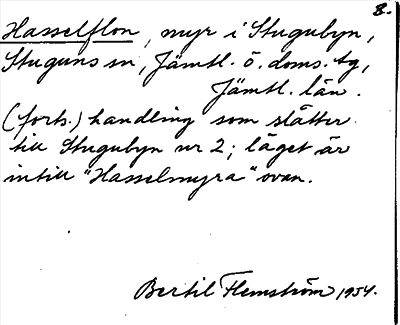 8.
Hasselflon, myr i Stugubyn,
Stuguns sn, Jämtl. ö. doms. tg,
Jämtl. län.
(forts.) handling som slåtter
till Stugubyn nr 2; läget är
intill "Hasselmyra" ovan.
Bertil Flemström 1954.